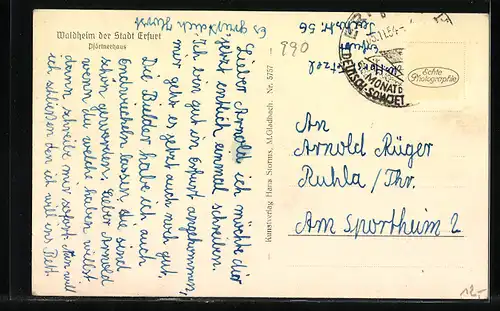 Waldheim der Stadt Erfurt
Pförtnerhaus
Lieber Arnold ich möchte dir
jetzt entlich einmal schreiben.
Ich bin gut in Erfurt angekommen,
mir geht es jetzt auch noch gut,
Die Bilder habe ich auch
endwickeln lassen, die sind
schön geworden, Lieber Arnold
wenn du welche haben willst
dann schreibe mir sofort. Nun will
ich schließen den ich will ins Bett.
Es grüßt dich Horst
Kunstverlag Hans Storms, M.Gladbach. Nr. 5757
990
Erfurt
Str. 56
MONAT D
DEUTSCH-SOWJET
Echte
Photographie
An
Arnold Rüger
Ruhla/Thr.
Am Sportheim 2
12,-